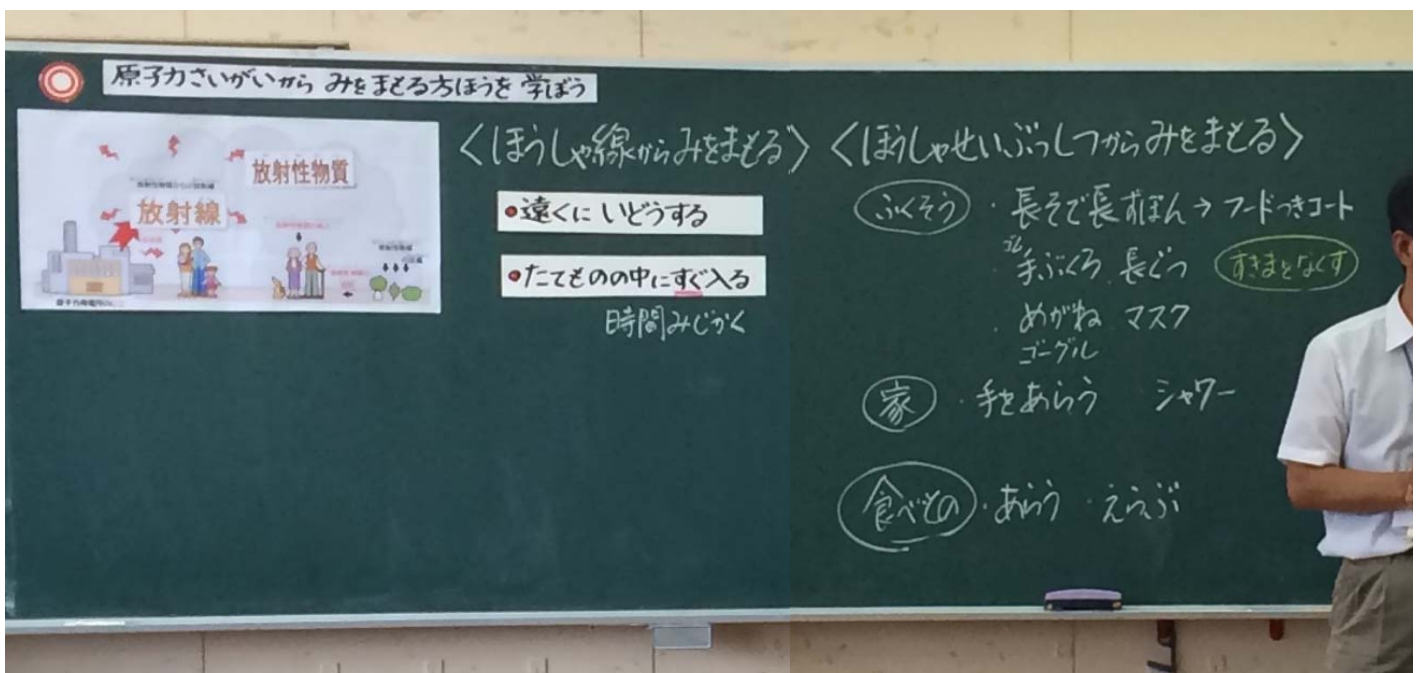 原子力さいがいから みをまもる方ほうを 学ぼう
放射性物質
放射線
原子力発電所
〈ほうしゃ線からみをまもる〉
・遠くに いどうする
・たてものの中にすぐ入る
時間みじかく
〈ほうしゃせいぶっしつからみをまもる〉
ふくそう ・長そで長ずぼん→フードつきコート
ゴム
・手ぶくろ 長ぐつ すきまをなくす
・めがね マスク
ゴーグル
家 ・手をあらう シャワー
食べもの ・あらう ・えらぶ